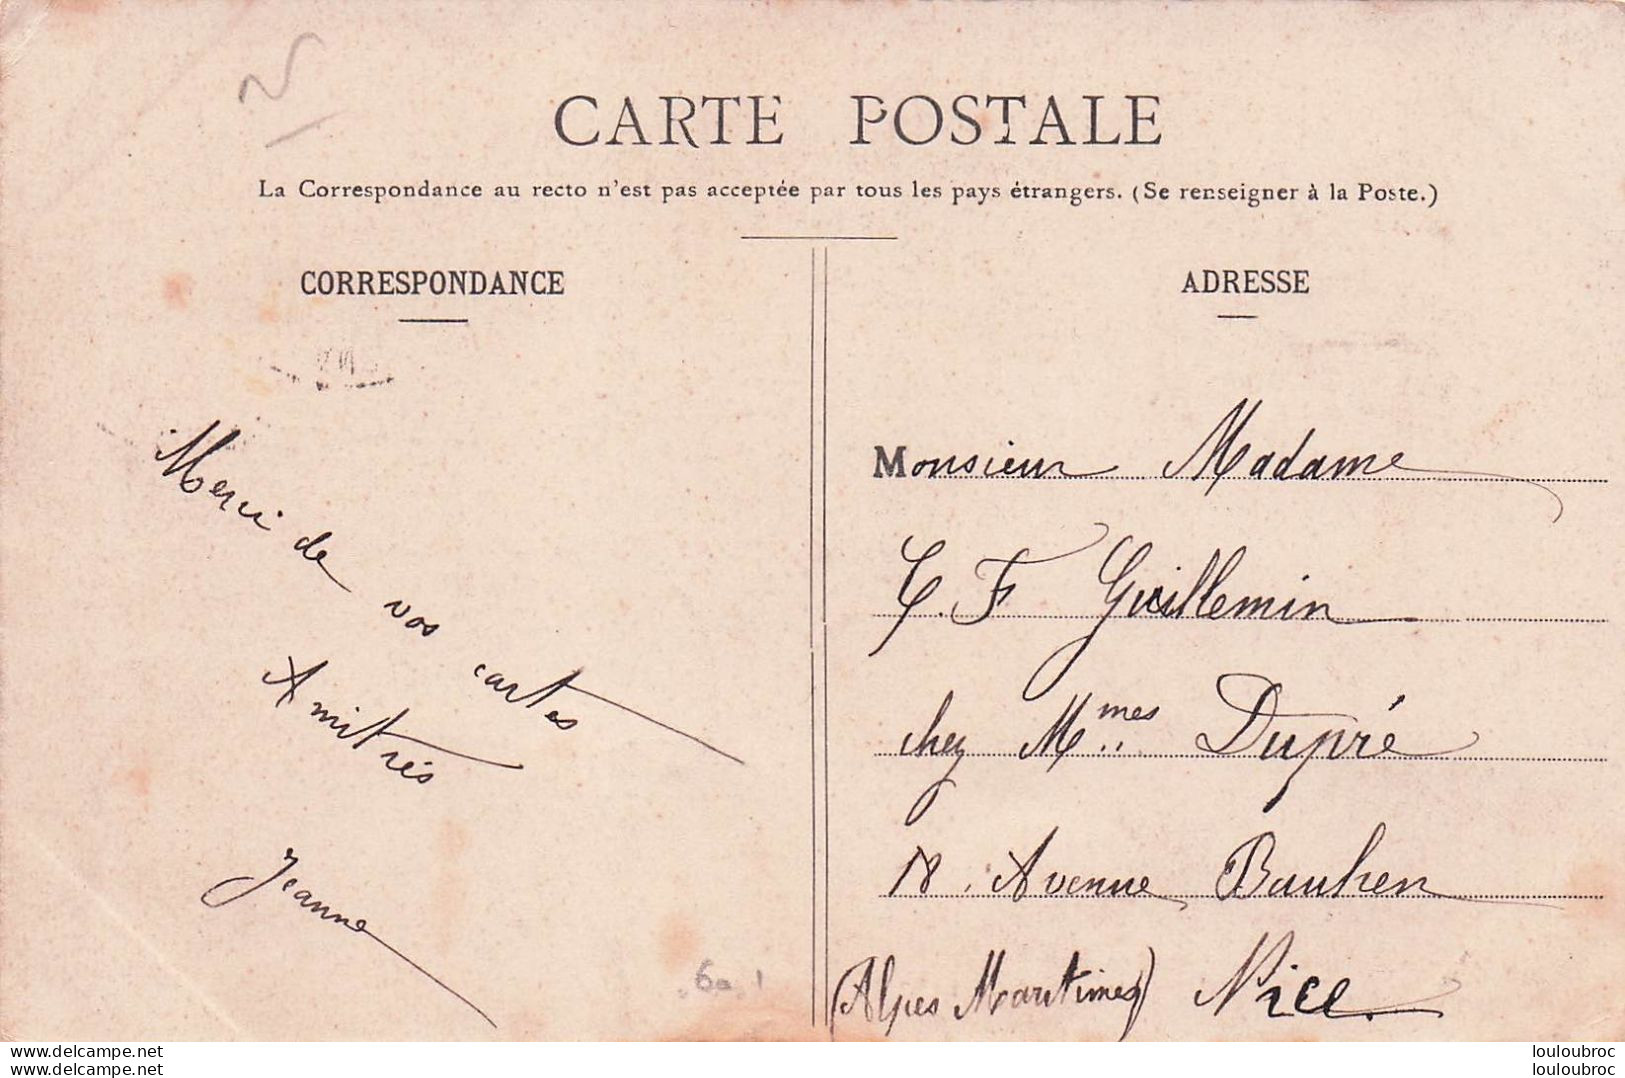 CARTE POSTALE
La Correspondance au recto n'est pas acceptée par tous les pays étrangers. (Se renseigner à la Poste.)
CORRESPONDANCE
Merci de vos cartes
Amitiés
Jeanne
ADRESSE
Monsieur Madame
F Guillemin
chez Mmes Dupré
18. Avenue
(Alpes Maritimes) Nice.
www.delcampe.net
louloubroc
www.delcampe.net
louloubroc